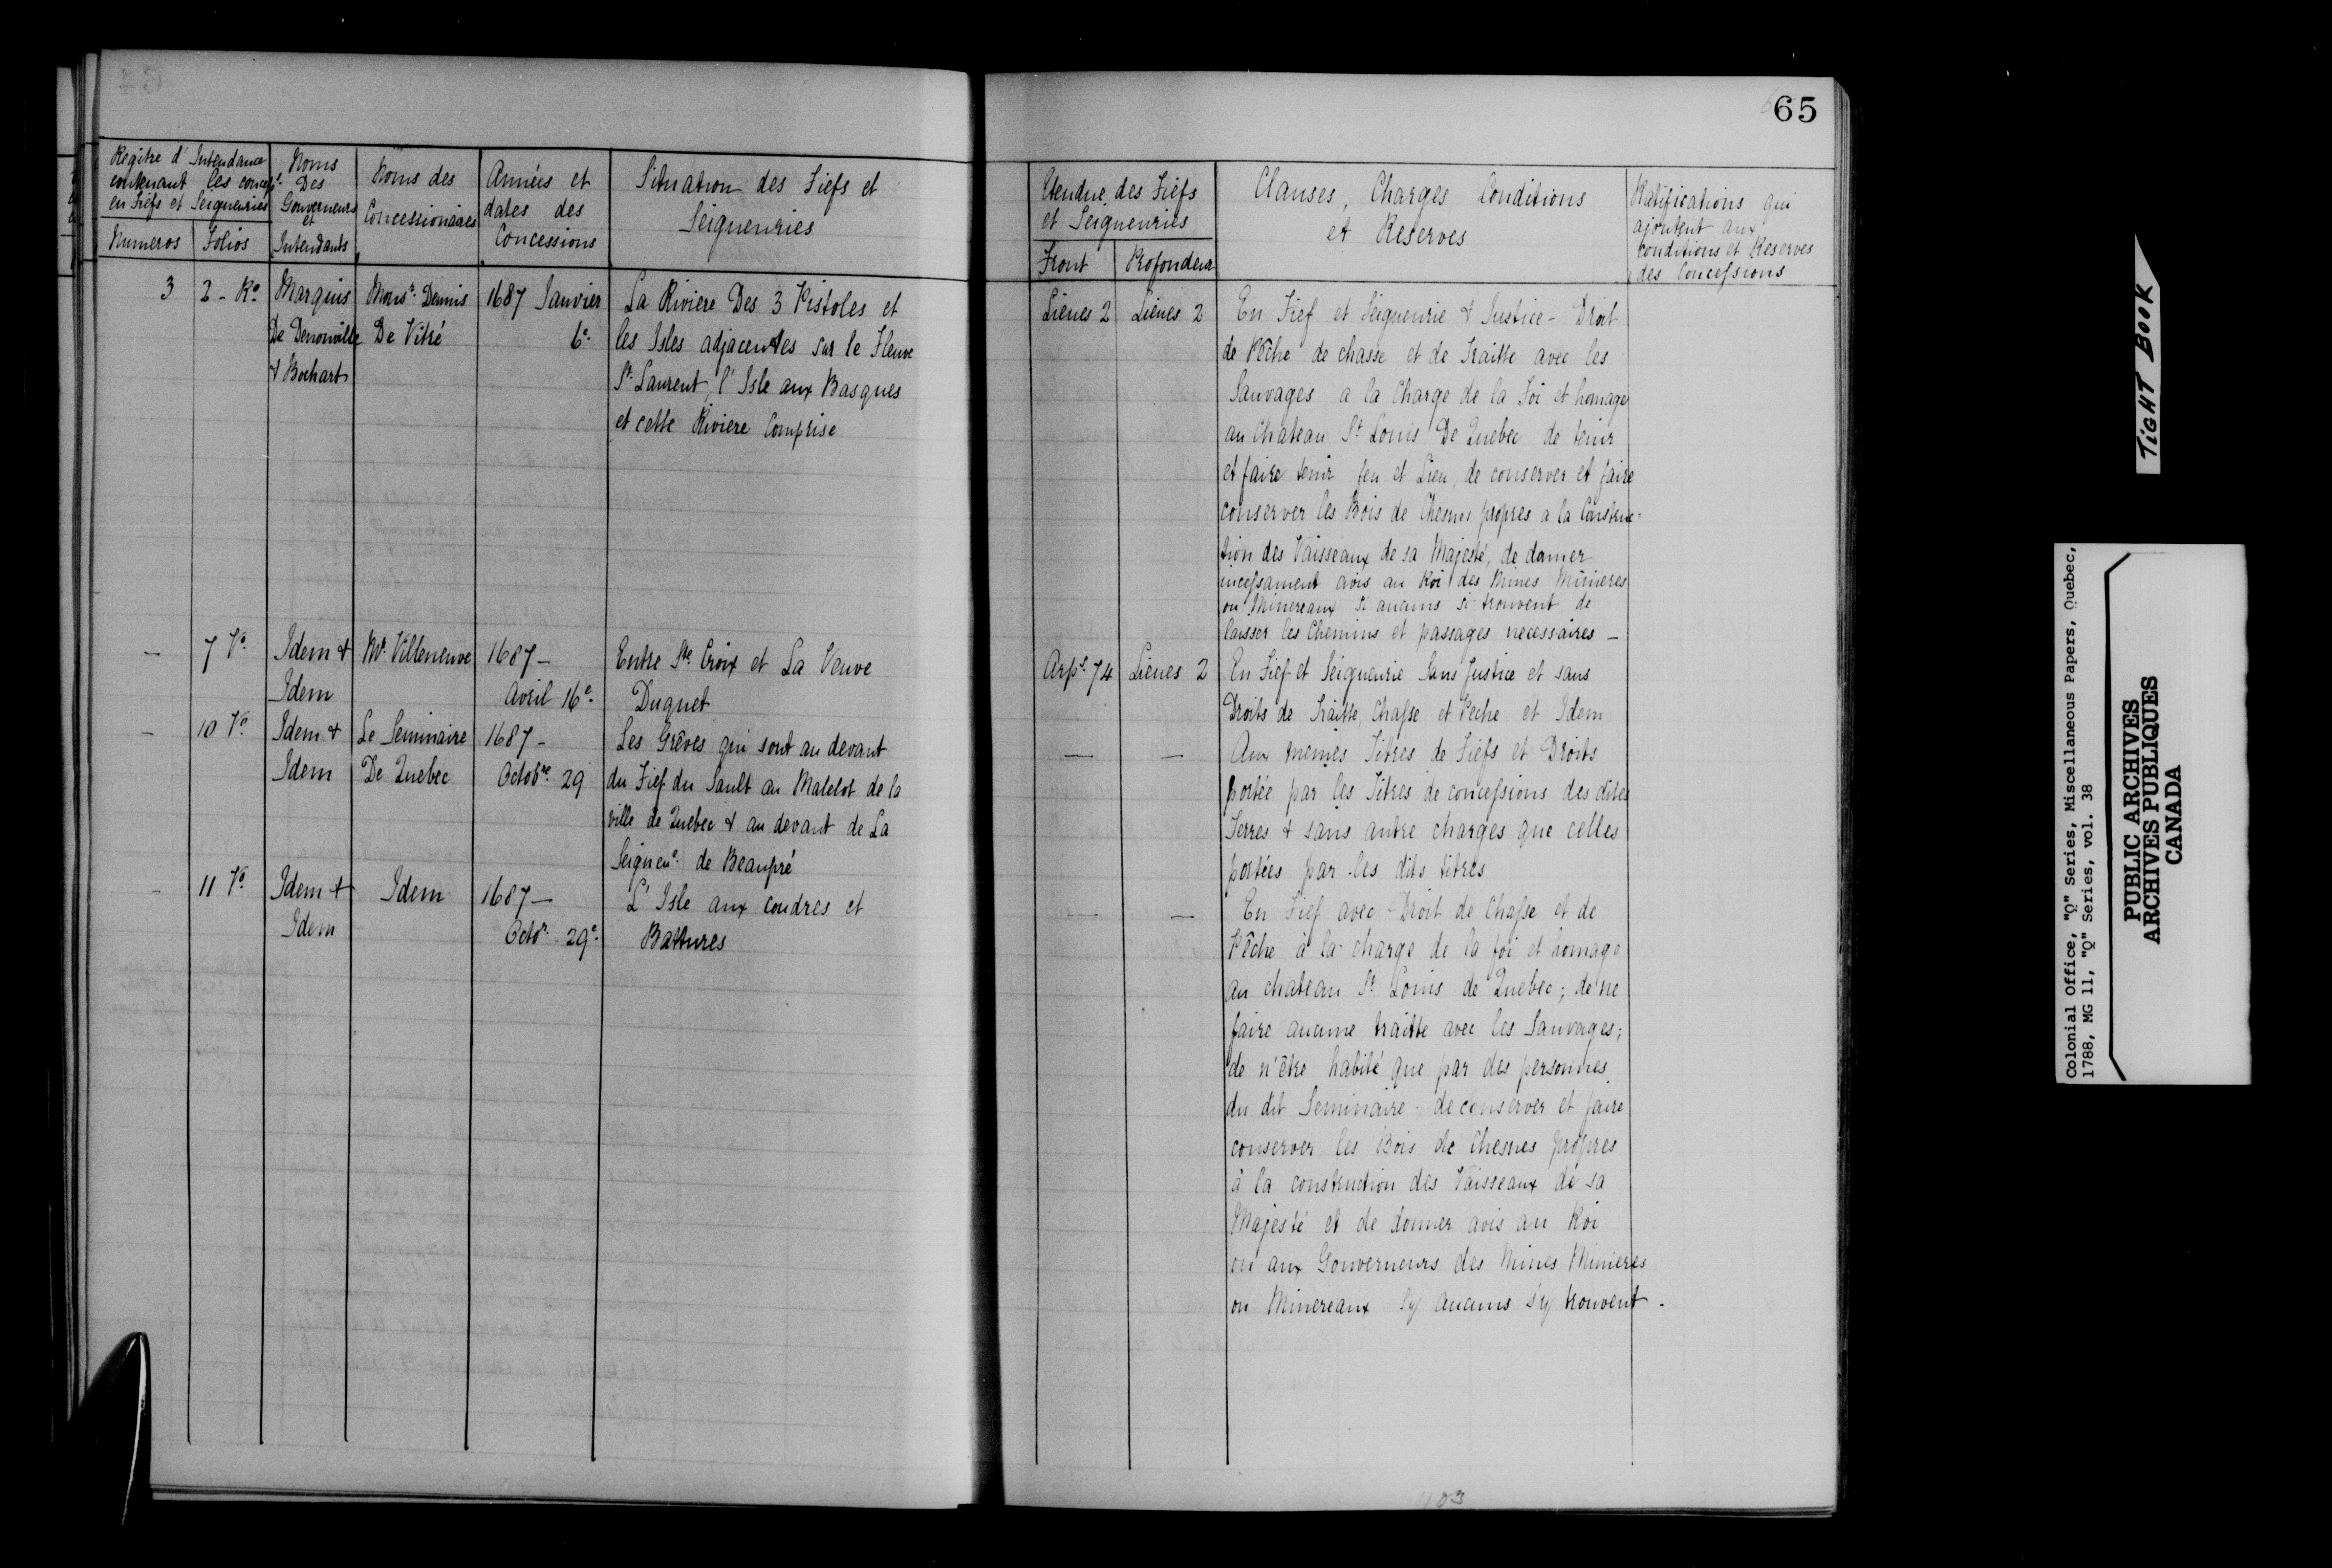 65
Regitre d'Intendance
contenant les concess.
en Fiefs et Seigneuries
Numeros
Folios
Noms
Des
Gouverneurs
et
Intendants
Noms des
Concessionaires
Années et
dates des
Concessions
Situation des Fiefs et
Seigneuries
Etendue des Fiefs
et Seigneuries
Front
Profondeur
Clauses, Charges Conditions
et Reserves
Ratifications qui
ajoutent aux
conditions et Reserves
des Concessions
3
2 - Ro.
Marquis
De Denonville
& Bochart
Monsr. Dennis
De Vitré
1687 Janvier
6e.
La Riviere Des 3 Pistoles et
les Isles adjacentes sur le Fleuve
St. Laurent, l'Isle aux Basques
et cette Riviere Comprise
Lieues 2
Lieues 2
En Fief et Seigneurie & Justice - Droit
de Pêche de chasse et de Traitte avec les
Sauvages a la Charge de la Foi et homage
au Chateau St. Louis De Quebec de tenir
et faire tenir feu et Lieu, de conserver et faire
conserver les Bois de Chesnes propres a la Construc-
tion des Vaisseaux de sa Majesté, de donner
incessament avis au Roi des Mines Minieres
ou Minereaux si aucuns si trouvent de
laisser les Chemins et passages necessaires -
-
7 Vo.
Idem &
Idem
Mr. Villeneuve
1687 -
Avril 16e.
Entre Ste. Croix et La Veuve
Duquet
Arps. 74
Lieues 2
En Fief et Seigneurie Sans Justice et sans
Droits de Traitte, Chasse et Peche et Idem
-
10 Vo.
Idem &
Idem
Le Seminaire
De Quebec
1687 -
Octobre. 29
Les Grêves qui sont au devant
du Fief du Sault au Matelot de la
ville de Quebec & au devant de La
Seigneue. de Beaupré
-
-
Aux memes Titres de Fiefs et Droits
portée par les Titres de concessions des dites
Terres & sans autre charges que celles
portées par les dits titres
-
11 Vo.
Idem &
Idem
Idem
1687 -
Octor. 29e.
L'Isle aux coudres et
Battures
-
-
En Fief avec Droit de Chasse et de
Pêche à la charge de la foi et homage
au chateau St. Louis de Quebec; de ne
faire aucune traitte avec les Sauvages;
de n'être habité que par des personnes
du dit Seminaire - de conserver et faire
conserver les Bois de Chesnes propres
à la construction des Vaisseaux de sa
Majesté et de donner avis au Roi
ou aux Gouverneurs des Mines Minieres
ou Minereaux sy aucuns s'y trouvent.
TIGHT BOOK
Colonial Office, "Q" Series, Miscellaneous Papers, Quebec,
1788, MG 11, "Q" Series, vol. 38
PUBLIC ARCHIVES
ARCHIVES PUBLIQUES
CANADA